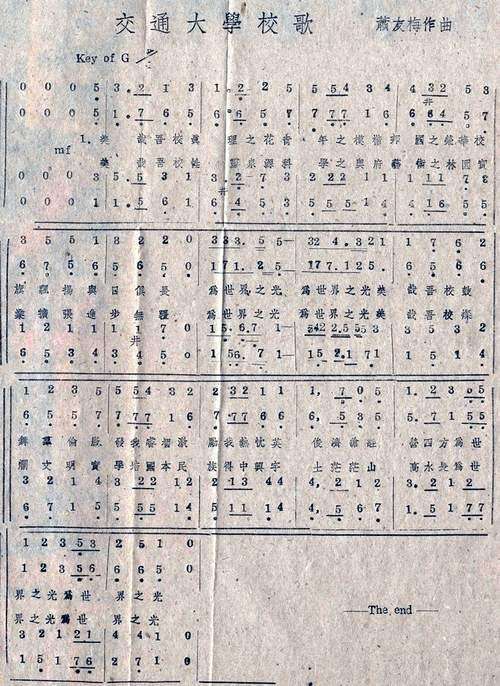 交通大學校歌 蕭友梅作曲
Key of G
0 0 0 5 3 . 2 1 3 1 . 2 2 5 5 5 4 3 4 4 3 2 5 3
0 0 0 5 1 . 7 6 5 6 . 6 5 7 7 7 7 1 6 6 6 4 5 7
1. 美 哉吾校眞 理之花靑 年之模楷邦 國之榮華校
mf 美 哉吾校性 靈泉源科 學之奧府藝 術之林園實
0 0 0 3 5 . 5 3 1 3 . 2 7 3 2 2 1 2 2 1 1 1 7
0 0 0 1 1 . 5 6 1 6 4 5 3 5 5 5 1 4 4 1 6 5 5
3 5 5 1 3 2 2 0 3 3 3 . 5 5 3 2 4 . 3 2 1 1 7 6 2
6 7 5 6 5 6 5 0 1 7 1 . 2 5 1 7 7 . 1 2 5 . 6 5 6 6
旗飄揚與日俱長 爲世界之光 爲世界之光美 哉吾校鼓
業擴張進步無疆 爲世界之光 爲世界之光美 哉吾校燦
1 2 1 1 1 1 7 0 1 5 . 6 7 1 5 4 2 2 . 5 5 3 3 5 3 2
6 5 3 4 3 4 5 0 1 5 6 . 7 1 1 5 2 . 1 7 1 1 5 1 4
1 2 3 5 5 5 4 3 2 2 3 2 1 1 1 , 7 0 5 1 . 2 3 0 5
6 5 5 7 7 7 7 1 6 7 7 7 6 6 6 , 5 3 5 5 . 7 1 5 5
舞羣倫啟發我睿智激 勵我熱忱英 俊濟濟 當四方爲世
爛文明實學培國本民 族得中興宇 土茫茫山 高水長爲世
3 2 1 4 3 2 2 1 2 2 1 3 4 4 4 , 2 1 2 3 . 2 1 2
6 7 1 5 5 5 5 1 4 5 1 1 1 4 4 , 5 6 7 1 . 5 1 7 7
1 2 3 5 3 2 5 1 0
1 2 3 5 6 6 6 5 0
界之光爲世 界之光
界之光爲世 界之光
3 2 1 2 1 4 4 1 0
1 5 1 7 6 2 7 1 0
The end